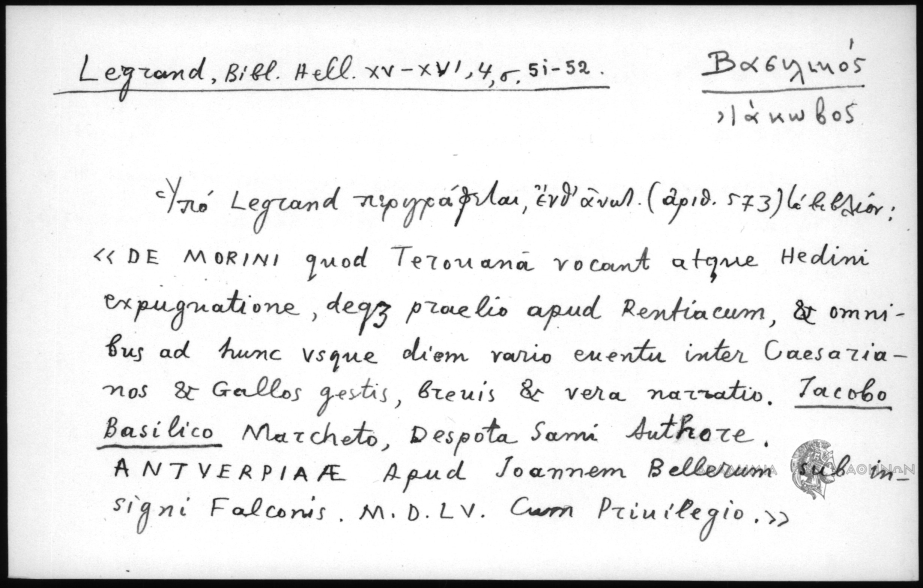 Legrand, Bibl. Hell. XV-XVI, 4, σ. 51-52.
Βασιλικός
Ἰάκωβος
Ὑπό Legrand περιγράφεται, ἔνθ' ἀνωτ. (ἀριθ. 573) τό βιβλίον:
«DE MORINI quod Terouanā vocant atque Hedini
expugnatione, deqꝫ praelio apud Rentiacum, & omni-
bus ad hunc vsque diem vario euentu inter Caesaria-
nos & Gallos gestis, breuis & vera narratio. Iacobo
Basilico Marcheto, Despota Sami Authore.
ANTVERPIAÆ Apud Ioannem Bellerum sub in-
signi Falconis. M.D.LV. Cum Priuilegio.»
ΑΘΗΝΩΝ